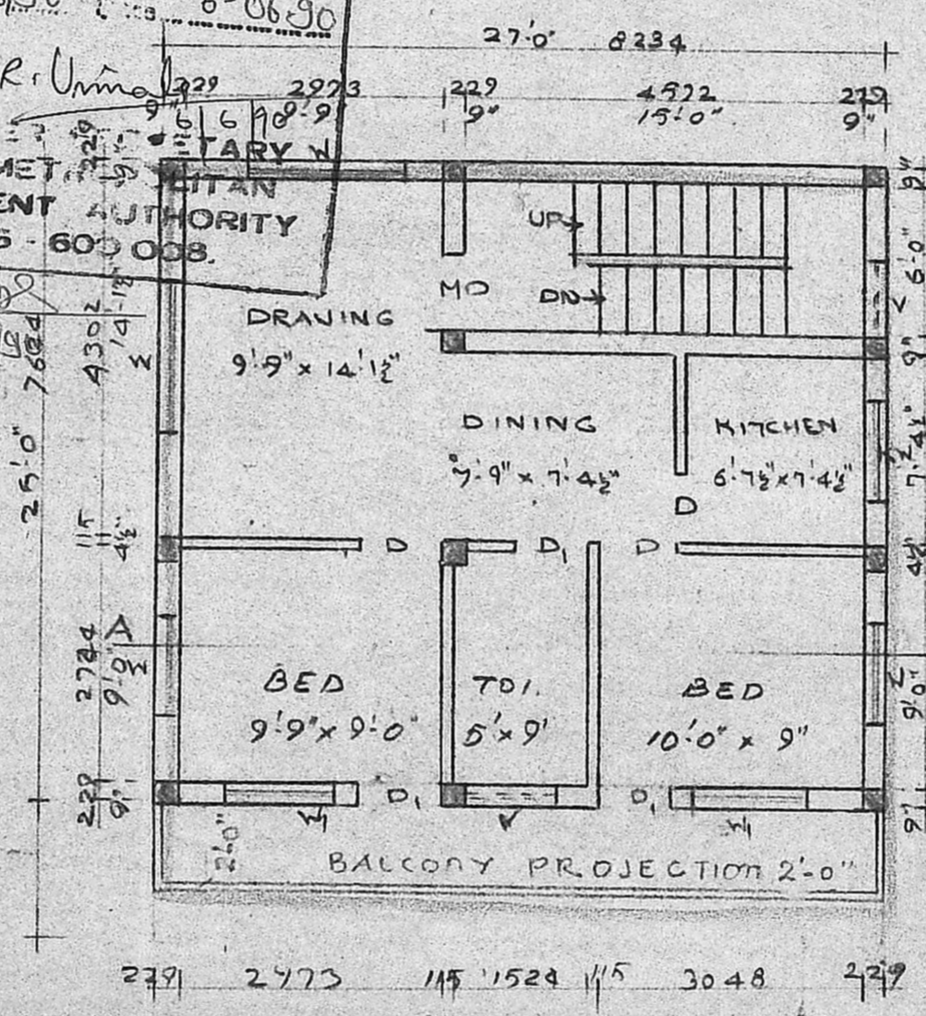 0690
27'-0" 8234
229 2973 229 4572 229
9" 9'-9" 9" 15'-0" 9"
6/6/90
TARY
LITAN
AUTHORITY
600 008.
UP
DN
MD
DRAWING
9'-9" x 14'-1½"
DINING
7'-9" x 7'-4½"
KITCHEN
6'-7½" x 7'-4½"
D
D D₁ D
BED
9'-9" x 9'-0"
TOI.
5' x 9'
BED
10'-0" x 9"
D₁ D₁
W₁ V W₁
2'-0"
BALCONY PROJECTION 2'-0"
25'-0"
229 9"
4302 14'-1½"
115 4½"
2744 9'-0"
A
229 9"
9"
6'-0"
9"
7'-4½"
4½"
9'-0"
9"
229 2973 115 1524 115 3048 229